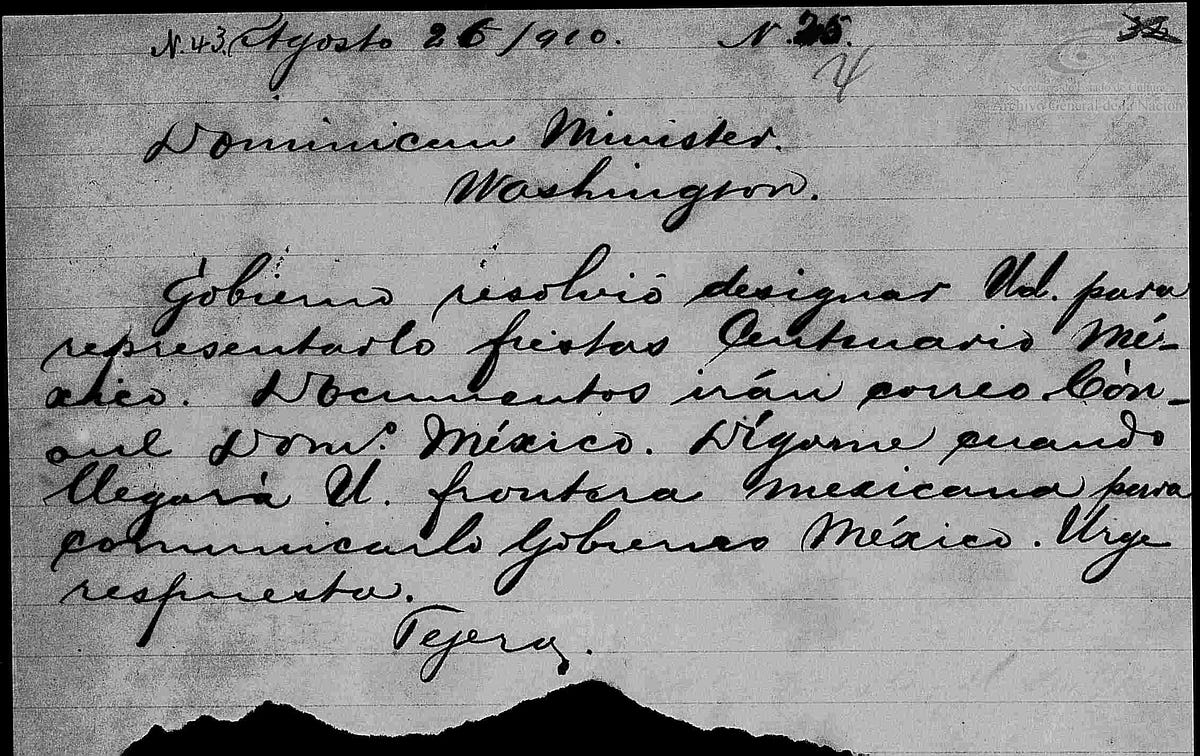 N. 43. Agosto 26/910. N. 25.
Dominican Minister.
Washington.
Gobierno resolvió designar Ud. para
representarlo fiestas Centenario Mé-
xico. Documentos irán correo Cón-
sul Domo. México. Dígame cuando
llegará U. frontera mexicana para
comunicarlo Gobierno México. Urge
respuesta.
Tejera.
Secretaría de Estado de Cultura
Archivo General de la Nación